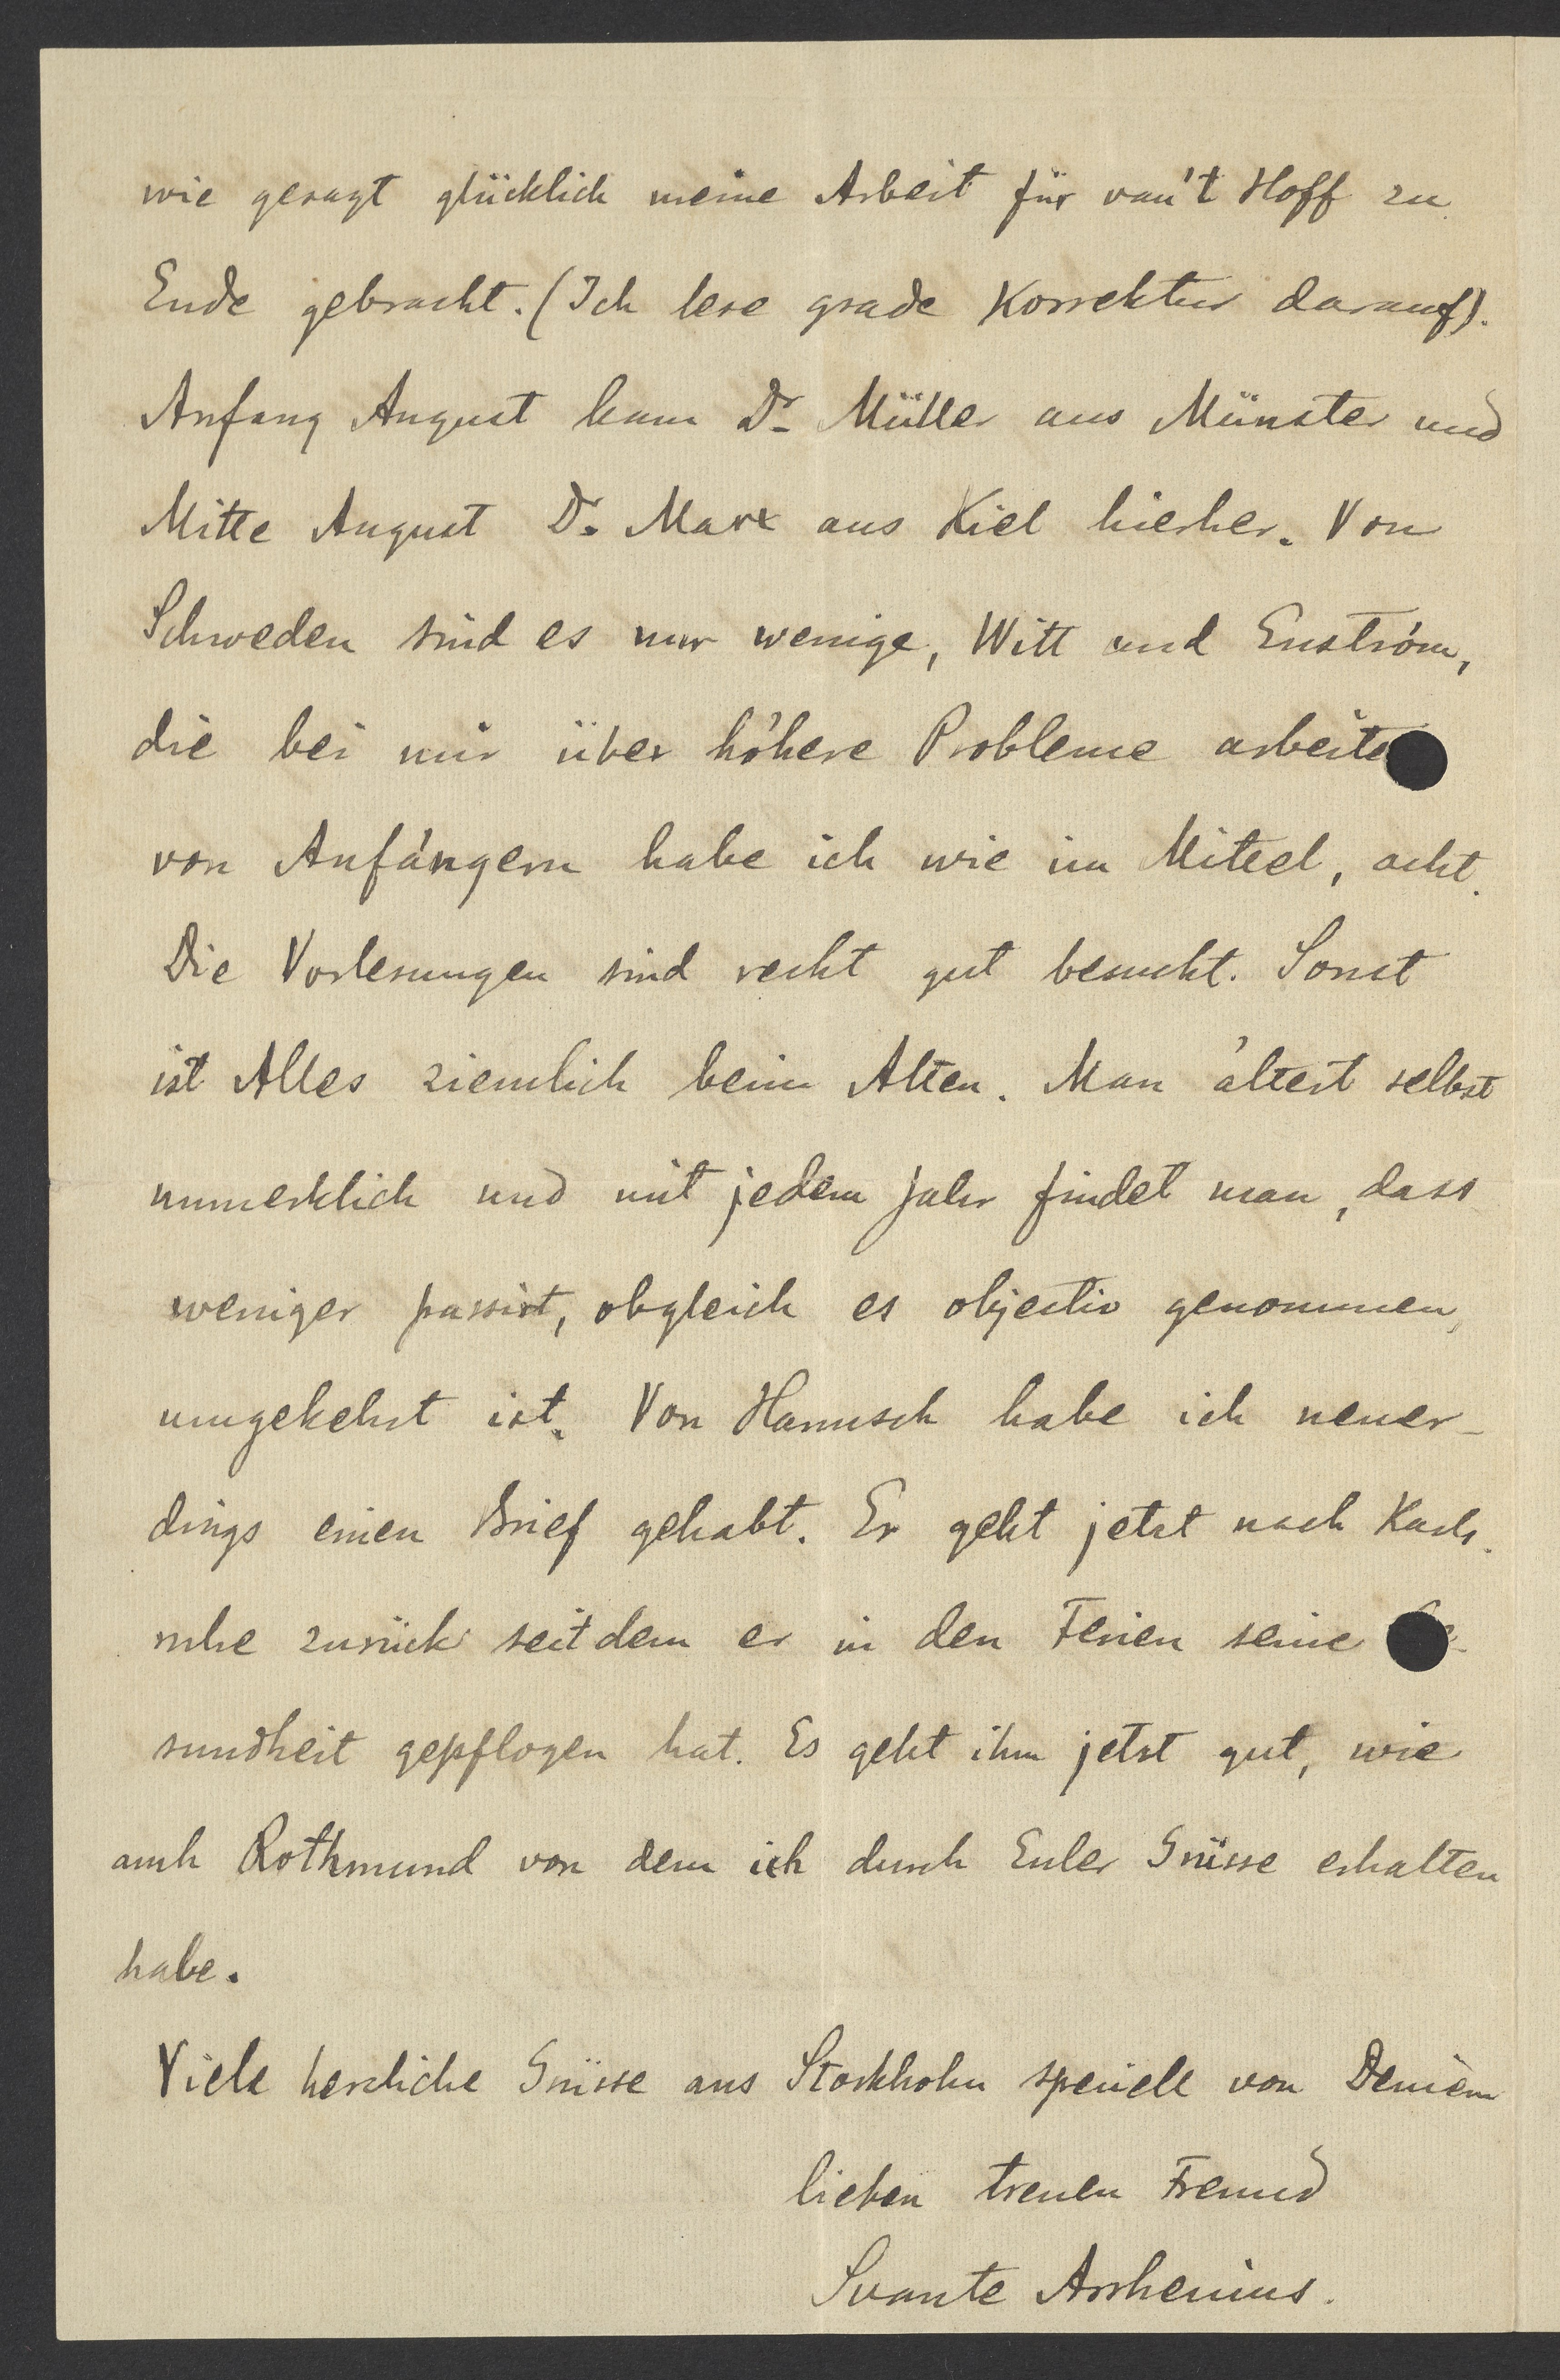 wie gesagt glücklich meine Arbeit für van't Hoff zu
Ende gebracht. (Ich lese grade Korrektur darauf).
Anfang August kam Dr. Müller aus Münster und
Mitte August Dr. Marx aus Kiel hierher. Von
Schweden sind es nur wenige, Witt und Enström,
die bei mir über höhere Probleme arbeite
von Anfängern habe ich wie im Mittel, acht.
Die Vorlesungen sind recht gut besucht. Sonst
ist Alles ziemlich beim Alten. Man ältert selbst
unmerklich und mit jedem Jahr findet man, dass
weniger passirt, obgleich es objectiv genommen,
umgekehrt ist. Von Hannsch habe ich neuer-
dings einen Brief gehabt. Er geht jetzt nach Karls-
ruhe zurück seitdem er in den Ferien seine
sundheit gepflogen hat. Es geht ihm jetzt gut, wie
auch Rothmund von dem ich durch Euler Grüsse erhalten
habe.
Viele herzliche Grüsse aus Stockholm speciell von Deinem
lieben treuen Freund
Svante Arrhenius.